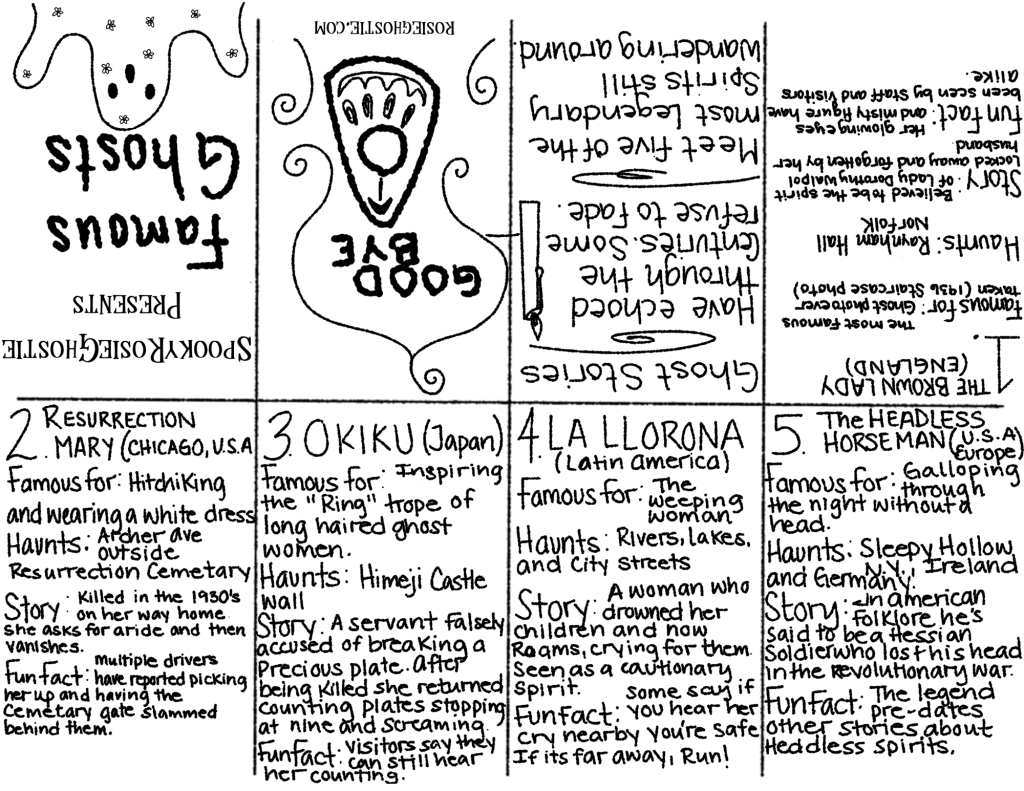 SPOOKYROSIEGHOSTIE
PRESENTS
Famous
Ghosts
Ghost Stories
Have echoed
through the
Centuries. Some
refuse to fade.
Meet five of the
most Legendary
Spirits still
wandering around.
1. THE BROWN LADY
(ENGLAND)
Famous for: The most Famous
Ghost photo ever
taken (1936 Staircase photo)
Haunts: Raynham Hall
Norfolk
Story: Believed to be the spirit
of Lady Dorothy Walpol
Locked away and forgotten by her
husband
Fun Fact: Her glowing eyes
and misty figure have
been seen by Staff and Visitors
alike.
2. RESURRECTION
MARY (CHICAGO, U.S.A
Famous for: Hitchiking
and wearing a white dress
Haunts: Archer ave
outside
Resurrection Cemetary
Story: Killed in the 1930's
on her way home
she asks for a ride and then
vanishes.
Fun Fact: multiple drivers
have reported picking
her up and having the
Cemetary gate slammed
behind them.
3. OKIKU (Japan)
Famous for: Inspiring
the "Ring" trope of
long haired ghost
women.
Haunts: Himeji Castle
wall
Story: A servant falsely
accused of breaking a
Precious plate. After
being killed she returned
counting plates stopping
at nine and screaming.
Fun Fact: Visitors say they
can still hear
her counting.
4. LA LLORONA
(Latin america)
Famous for: The
weeping
woman
Haunts: Rivers, lakes,
and City streets
Story: A woman who
drowned her
children and now
Roams, crying for them.
Seen as a cautionary
spirit.
Fun Fact: some say if
you hear her
cry nearby you're safe
If its far away, Run!
5. The HEADLESS
HORSEMAN (U.S.A
Europe)
Famous for: Galloping
through
the night without a
head.
Haunts: Sleepy Hollow
N.Y., Ireland
and Germany.
Story: In american
folklore he's
said to be a Hessian
Soldier who lost his head
in the Revolutionary war.
Fun Fact: The legend
pre-dates
other stories about
Heddless spirits.
GOOD
BYE
ROSIEGHOSTIE.COM